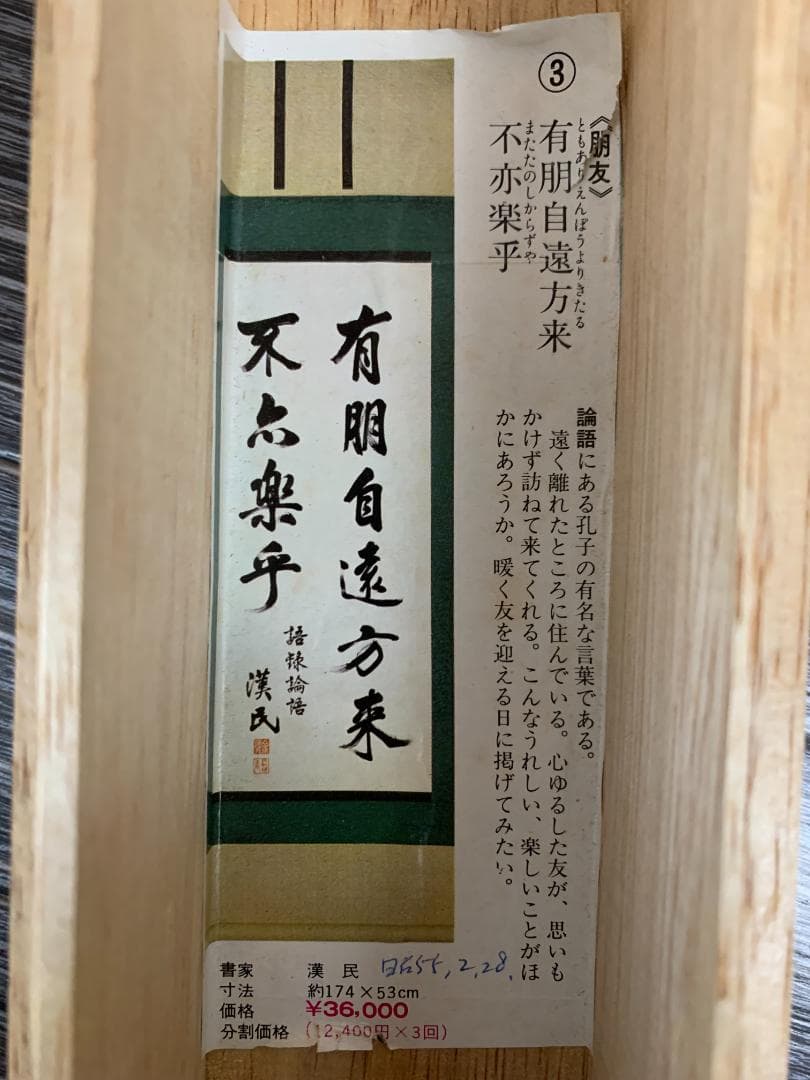 ③
《朋友》
ともありえんぽうよりきたる
有朋自遠方来
またたのしからずや
不亦楽乎
論語にある孔子の有名な言葉である。
遠く離れたところに住んでいる。心ゆるした友が、思いも
かけず訪ねて来てくれる。こんなうれしい、楽しいことがほ
かにあろうか。暖く友を迎える日に掲げてみたい。
有朋自遠方来
不亦楽乎
語録論語
漢民
書家 漢民 昭55,2,28,
寸法 約174×53cm
価格 ¥36,000
分割価格 (12,400円×3回)